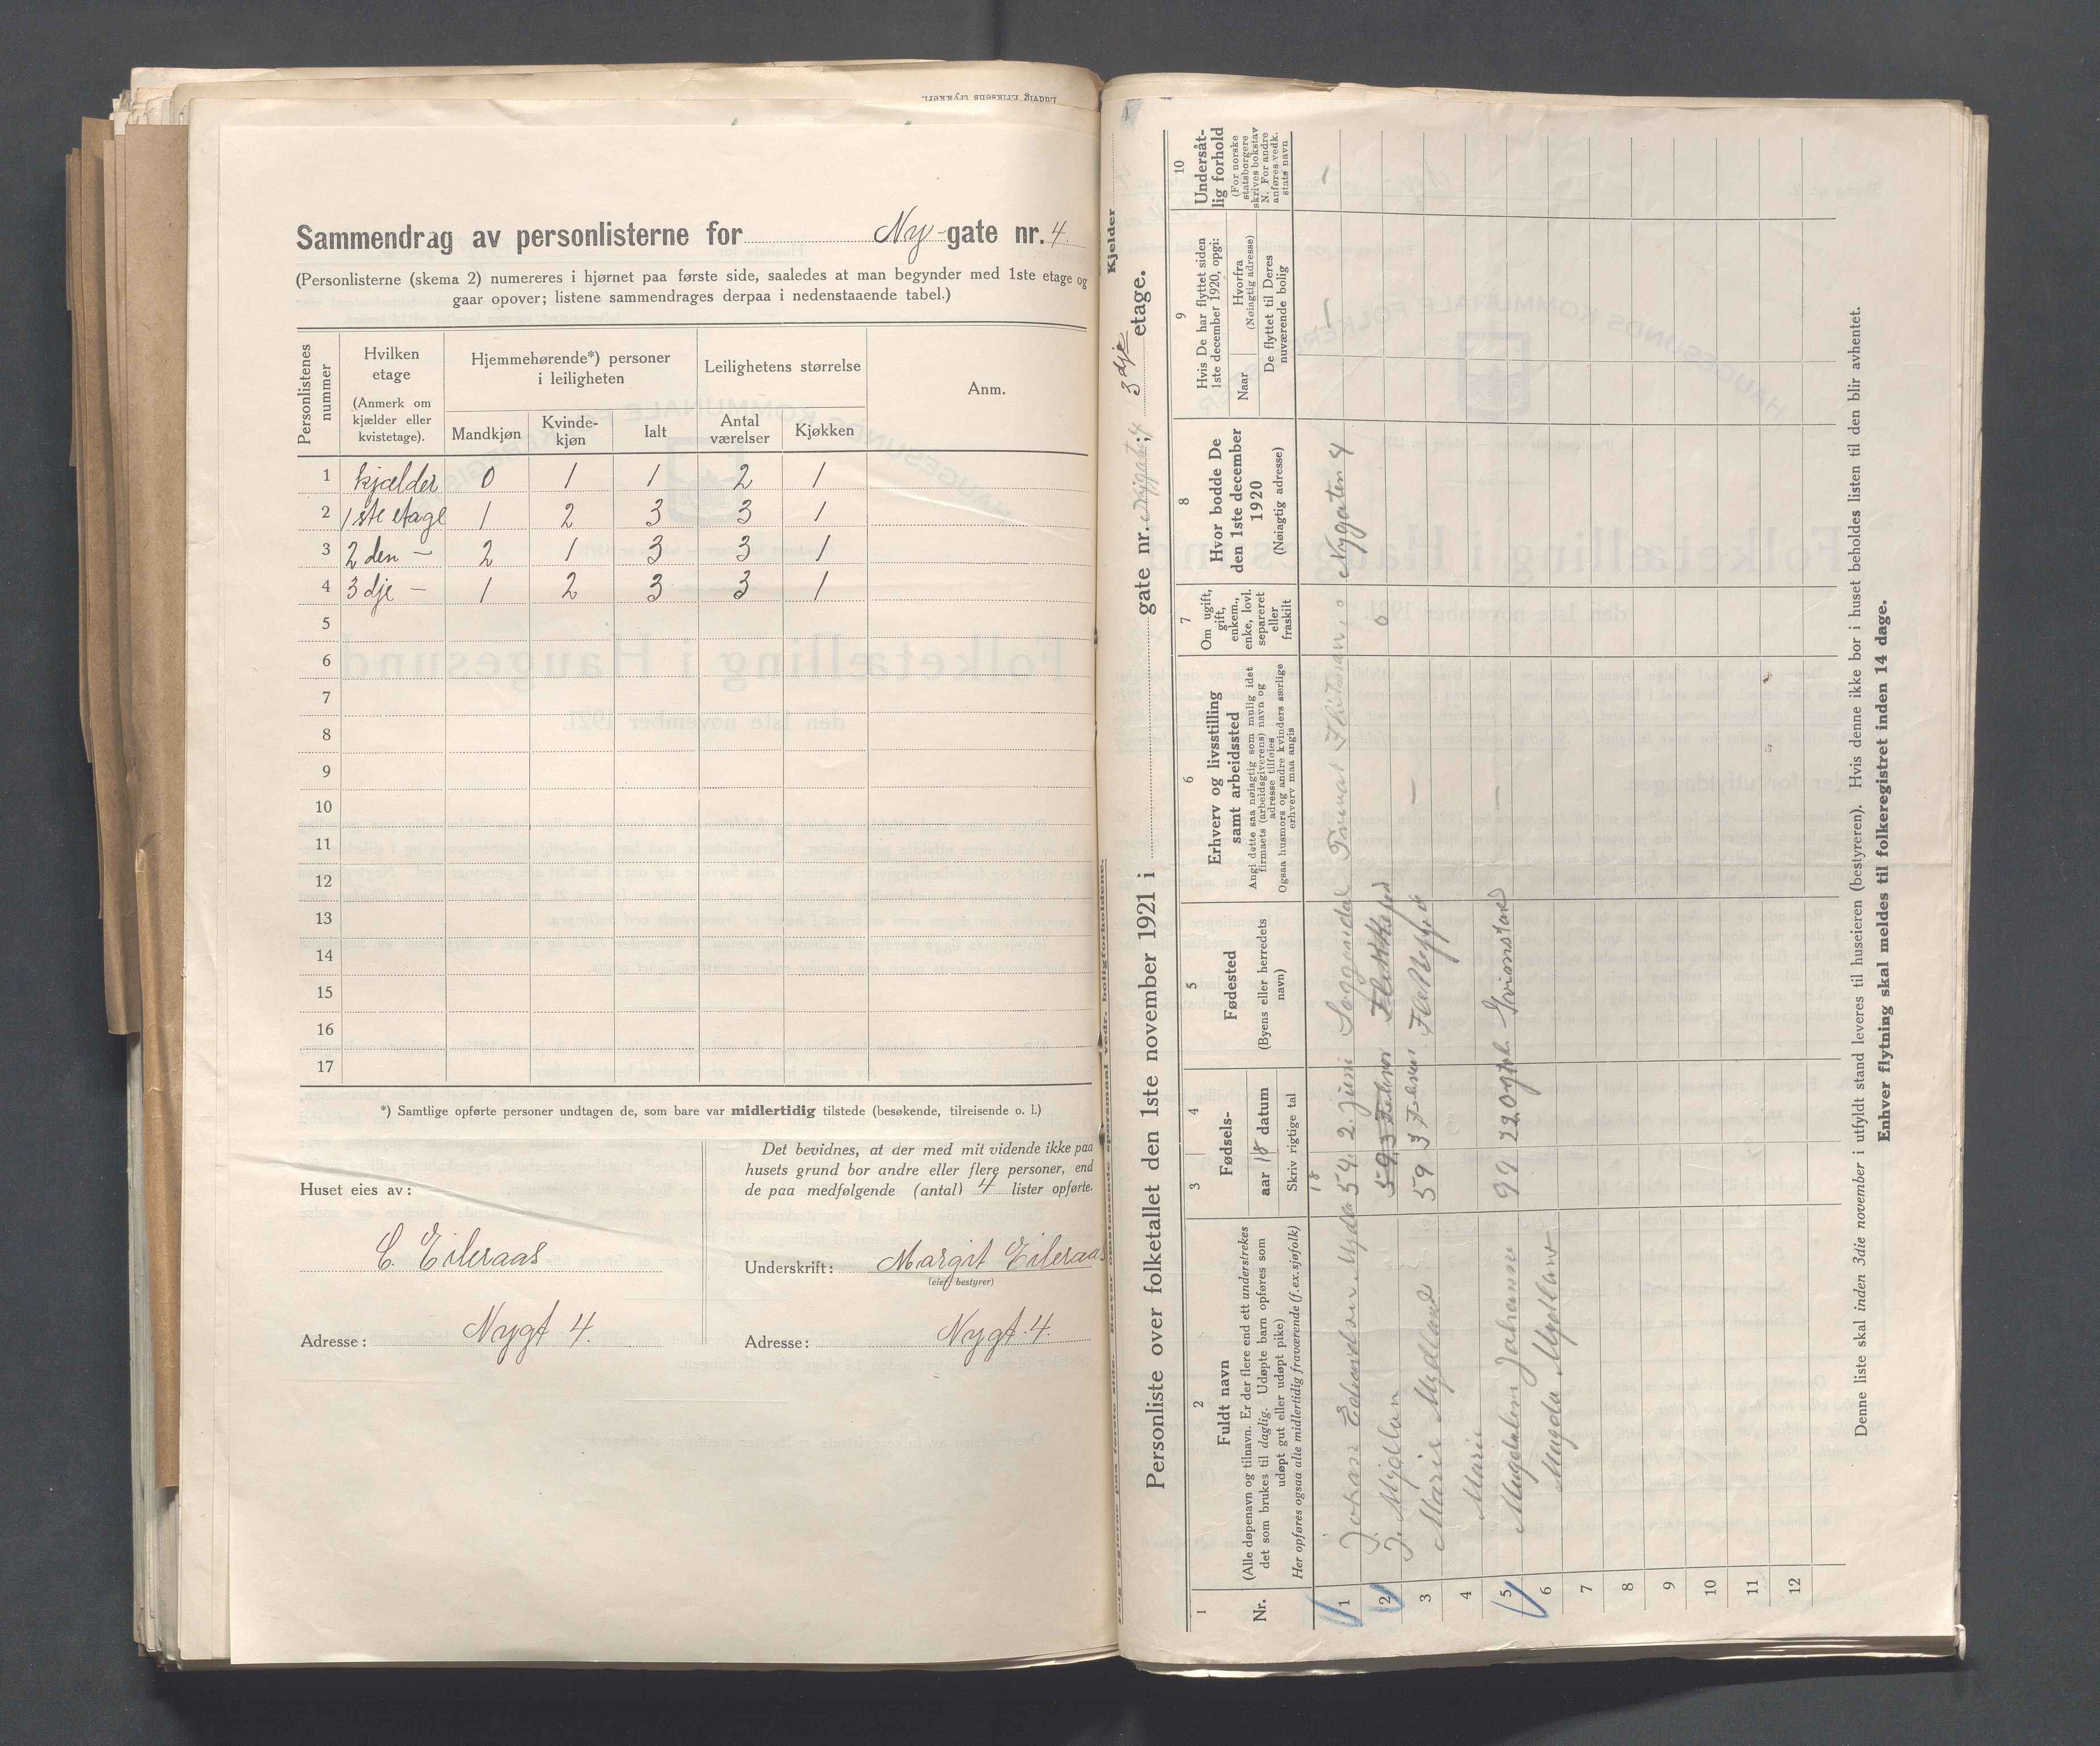 Sammendrag av personlisterne for Ny-gate nr. 4.
(Personlisterne (skema 2) numereres i hjørnet paa første side, saaledes at man begynder med 1ste etage og
gaar opover; listene sammendrages derpaa i nedenstaaende tabel.)
Personlistenes nummer | Hvilken etage (Anmerk om kjælder eller kvistetage). | Hjemmehørende*) personer i leiligheten | Leilighetens størrelse | Anm.
Mandkjøn | Kvindekjøn | Ialt | Antal værelser | Kjøkken
1 kjælder 0 1 1 2 1
2 1ste etage 1 2 3 3 1
3 2den — 2 1 3 3 1
4 3dje — 1 2 3 3 1
5
6
7
8
9
10
11
12
13
14
15
16
17
*) Samtlige opførte personer undtagen de, som bare var midlertidig tilstede (besøkende, tilreisende o. l.)
Huset eies av:
C. Eileraas
Adresse: Nygt 4.
Det bevidnes, at der med mit vidende ikke paa
husets grund bor andre eller flere personer, end
de paa medfølgende (antal) 4 lister opførte.
Underskrift: Margit Eileraas
(eier, bestyrer)
Adresse: Nygt. 4.
Kjelder
Personliste over folketallet den 1ste november 1921 i gate nr. Nygaten 4; 3dje etage.
1 Nr.
2 Fuldt navn
(Alle døpenavn og tilnavn. Er der flere end ett understrekes
det som brukes til daglig. Udøpte barn opføres som
udøpt gut eller udøpt pike)
Her opføres ogsaa alle midlertidig fraværende (f. ex. sjøfolk)
3 4 Fødsels-
aar 18 datum
Skriv rigtige tal
5 Fødested
(Byens eller herredets
navn)
6 Erhverv og livsstilling
samt arbeidssted
Angi dette saa nøiagtig som mulig idet
firmaets (arbeidsgiverens) navn og
adresse tilføies
Ogsaa husmors og andre kvinders særlige
erhverv maa angis
7 Om ugift,
gift,
enkem.,
enke, lovl.
separeret
eller
fraskilt
8 Hvor bodde De
den 1ste december
1920
(Nøiagtig adresse)
9 Hvis De har flyttet siden
1ste december 1920, opgi:
Naar
Hvorfra
(Nøiagtig adresse)
De flyttet til Deres
nuværende bolig
10 Undersåt-
lig forhold
(For norske
statsborgere
skrives bokstav
N. For andre
anføres vedk.
stats navn
18
1 Johan Edvardsen 54 2 juni Soggendal Nygaten 4
2 J. Mydlan 59 3 Flekkefjord
3 Marie Mydland 59 3 Flekkefjord —
4 Marie
5 Magdalen Johanne 99 22 —
6 Magda Mydland
7
8
9
10
11
12
Denne liste skal inden 3die november i utfyldt stand leveres til huseieren (bestyreren). Hvis denne ikke bor i huset beholdes listen til den blir avhentet.
Enhver flytning skal meldes til folkeregistret inden 14 dage.